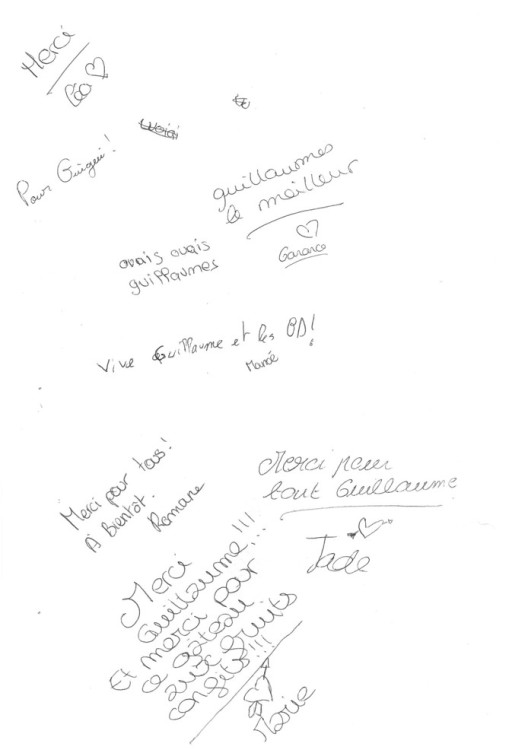 Merci
Léa
Pour Guigui!
guillaumes
le meilleur
Garance
ouais ouais
guillaumes
Vive Guillaume et les BD!
Manoé
Merci pour tous!
A Bientôt.
Romane
Merci pour
tout Guillaume
Jade
Merci
Guillaume!!!
Et merci pour
ce gâteau
aux fruits
confits!!!
Marie